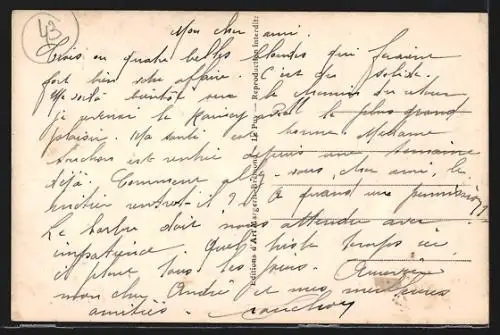 43
Mon cher ami.
Trois ou quatre belles blondes qui feraient
fort bien votre affaire. C'est du solide.
Me voilà bientôt sur le chemin du retour
je reverrai le Raincy le plus grand
plaisir. Ma santé est bonne. Madame
est rentrée depuis une semaine
déjà. Comment allez-vous, cher ami, le
métier rentre-t-il ? A quand une permission ??
Le barbu doit nous attendre avec
impatience. Quel triste temps ici
il pleut tous les jours.
mon cher André et mes meilleures
amitiés.
Editions d'Art Margerit-Brémond - Le Puy - Reproduction Interdite